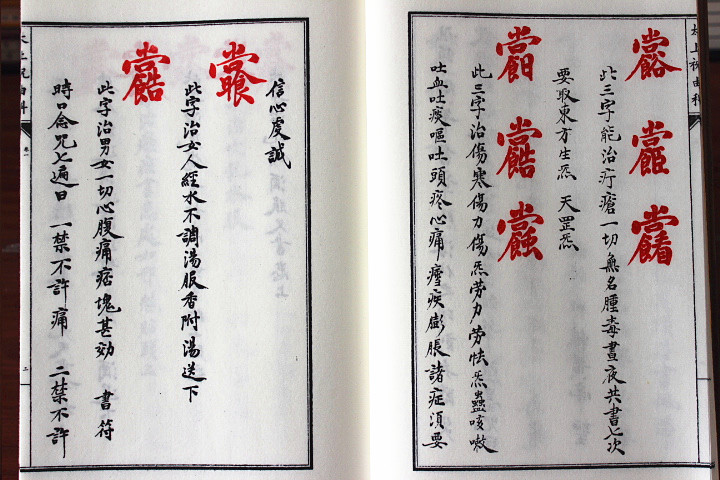 太上祝由科
此三字能治疔瘡一切無名腫毒晝夜共書七次
要取東方生炁 天罡炁
此三字治傷寒傷力傷炁勞力勞怯炁蠱咳嗽
吐血吐痰嘔吐頭疼心痛瘧疾膨脹諸症須要
信心虔誠
此字治女人經水不調湯服香附湯送下
此字治男女一切心腹痛痞塊甚効 書符
時口念咒七遍曰 一禁不許痛 二禁不許
太上祝由科
卷一
二